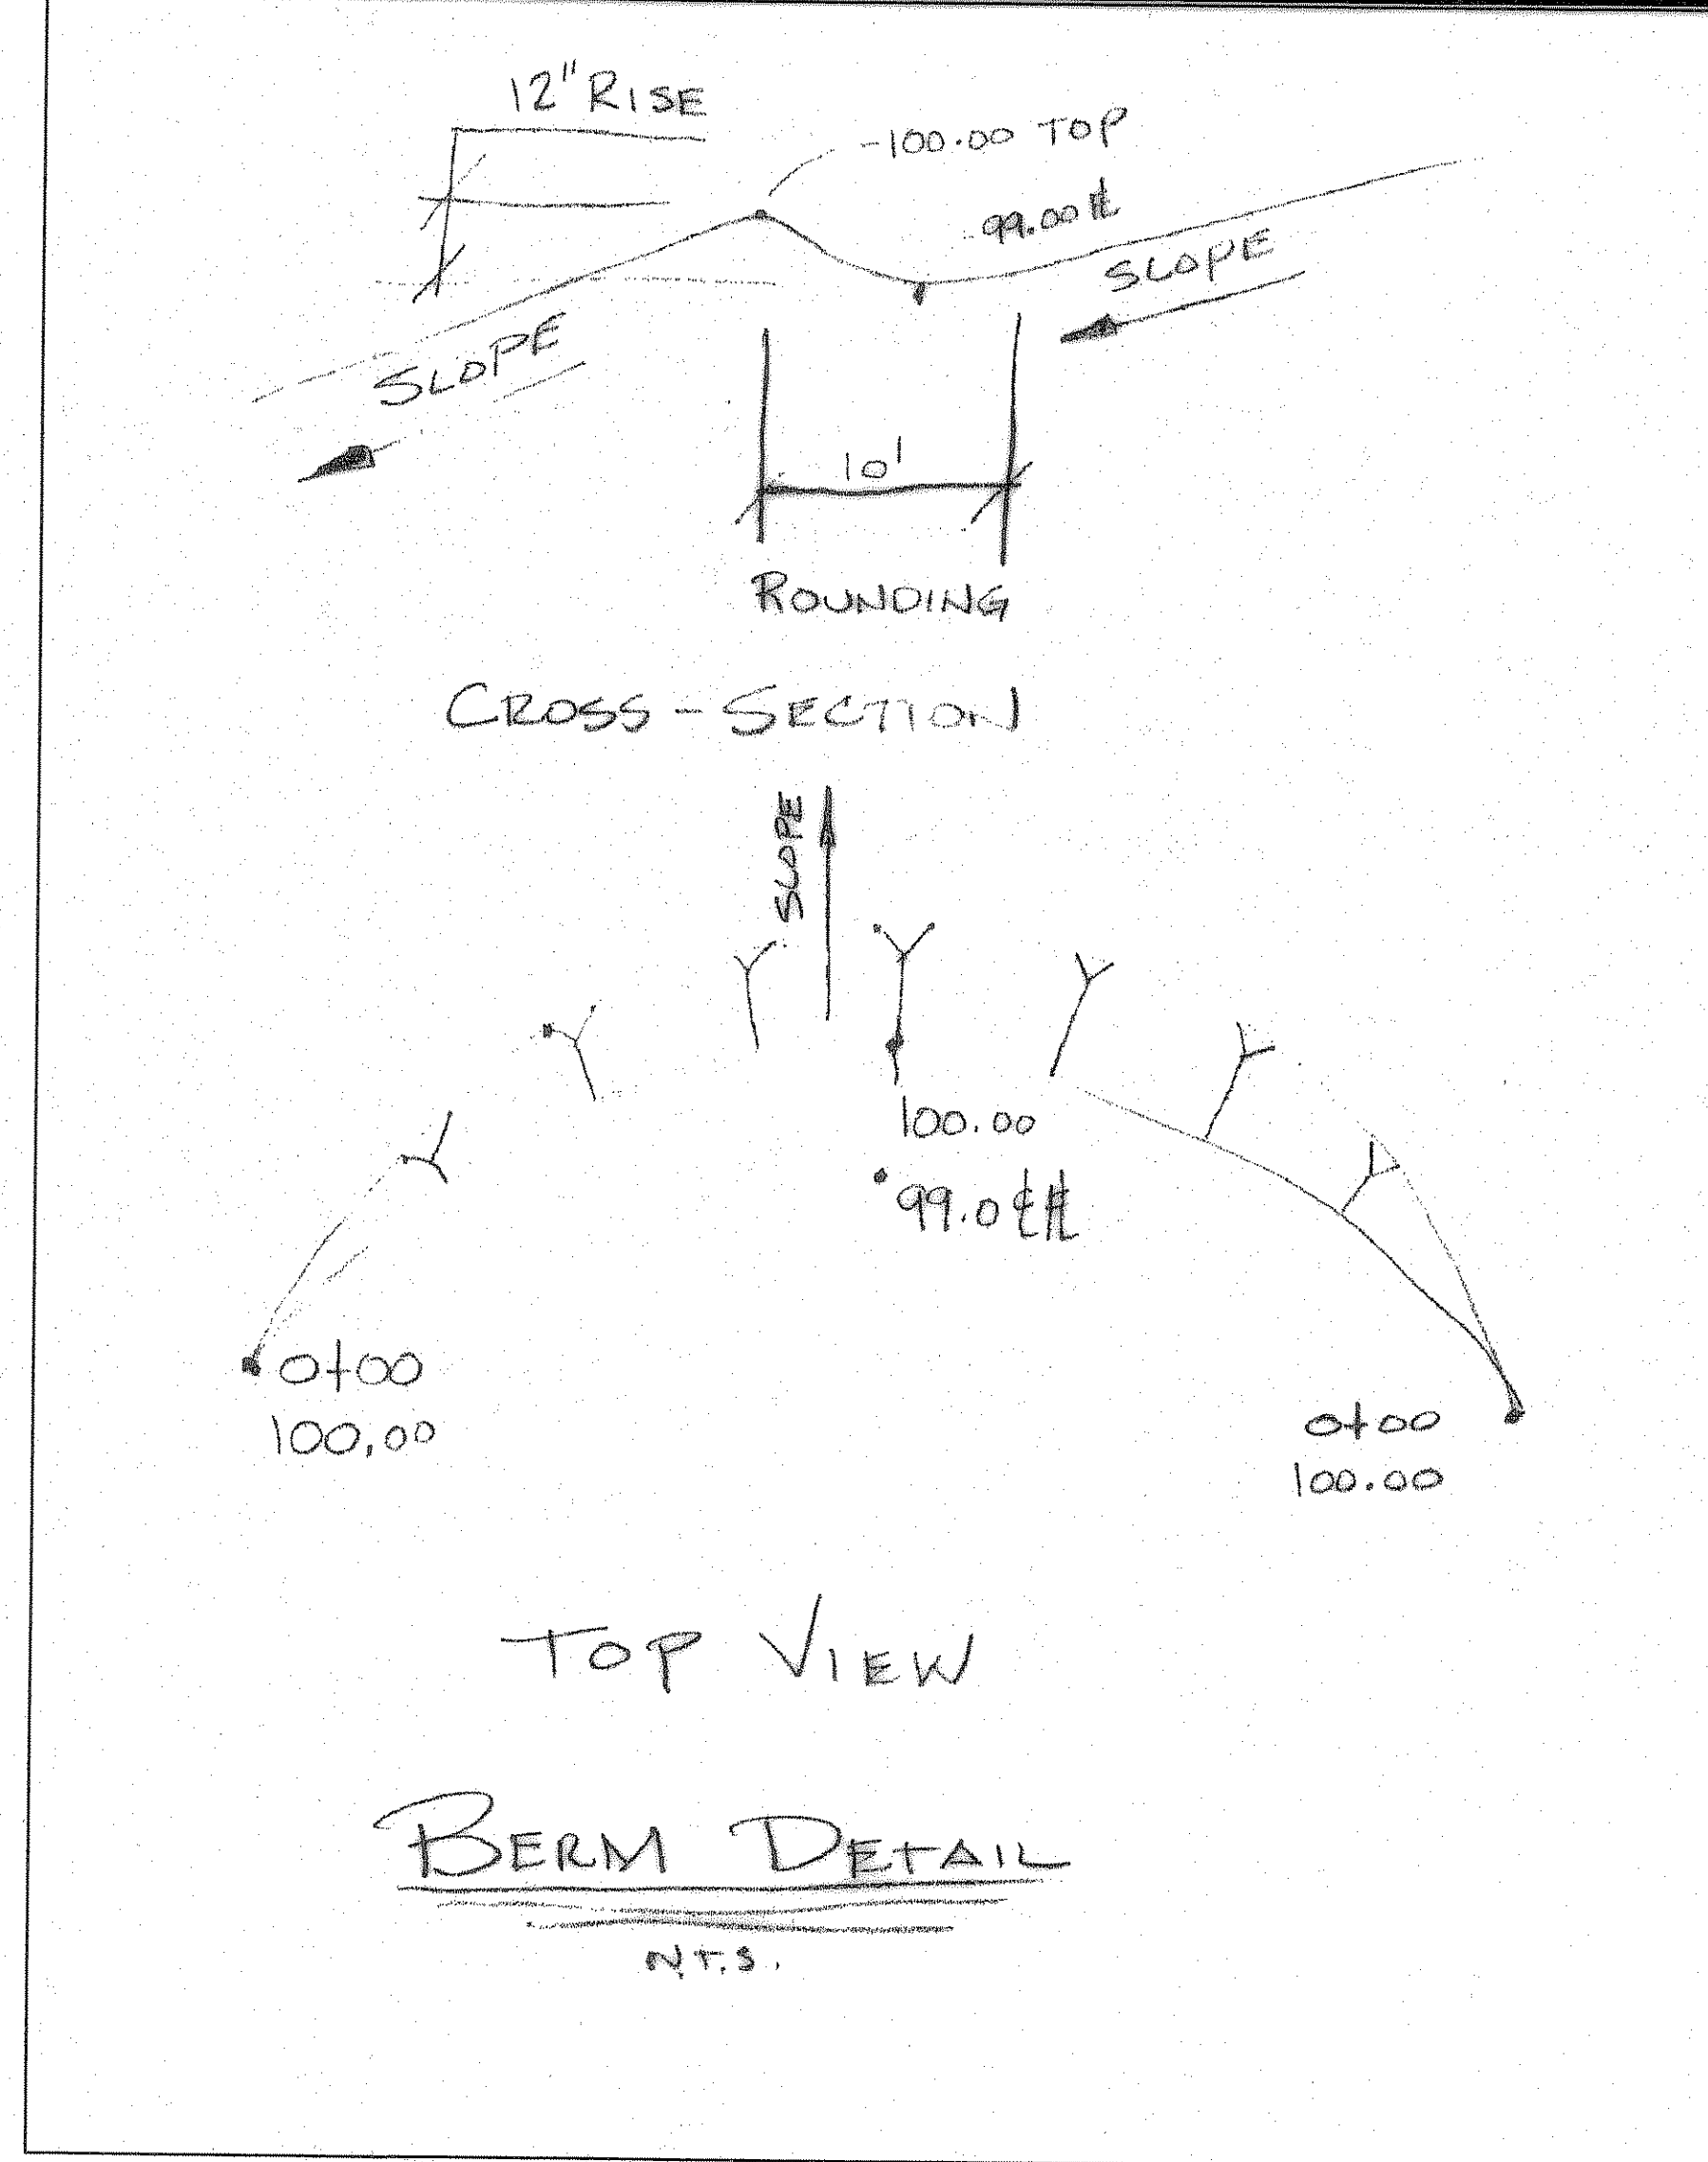 12" RISE
-100.00 TOP
99.00 ℄
SLOPE
SLOPE
10'
ROUNDING
CROSS-SECTION
SLOPE
100.00
99.0
0+00
100.00
0+00
100.00
TOP VIEW
BERM DETAIL
N.T.S.